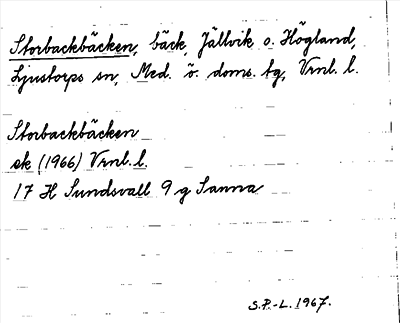 Storbackbäcken, bäck, Jällvik o. Högland,
Ljustorps sn, Med. ö. doms. tg, Vrnl. l.
Storbackbäcken
ek (1966) Vrnl. l.
17 H Sundsvall 9 g Sanna
S.P.-L. 1967.